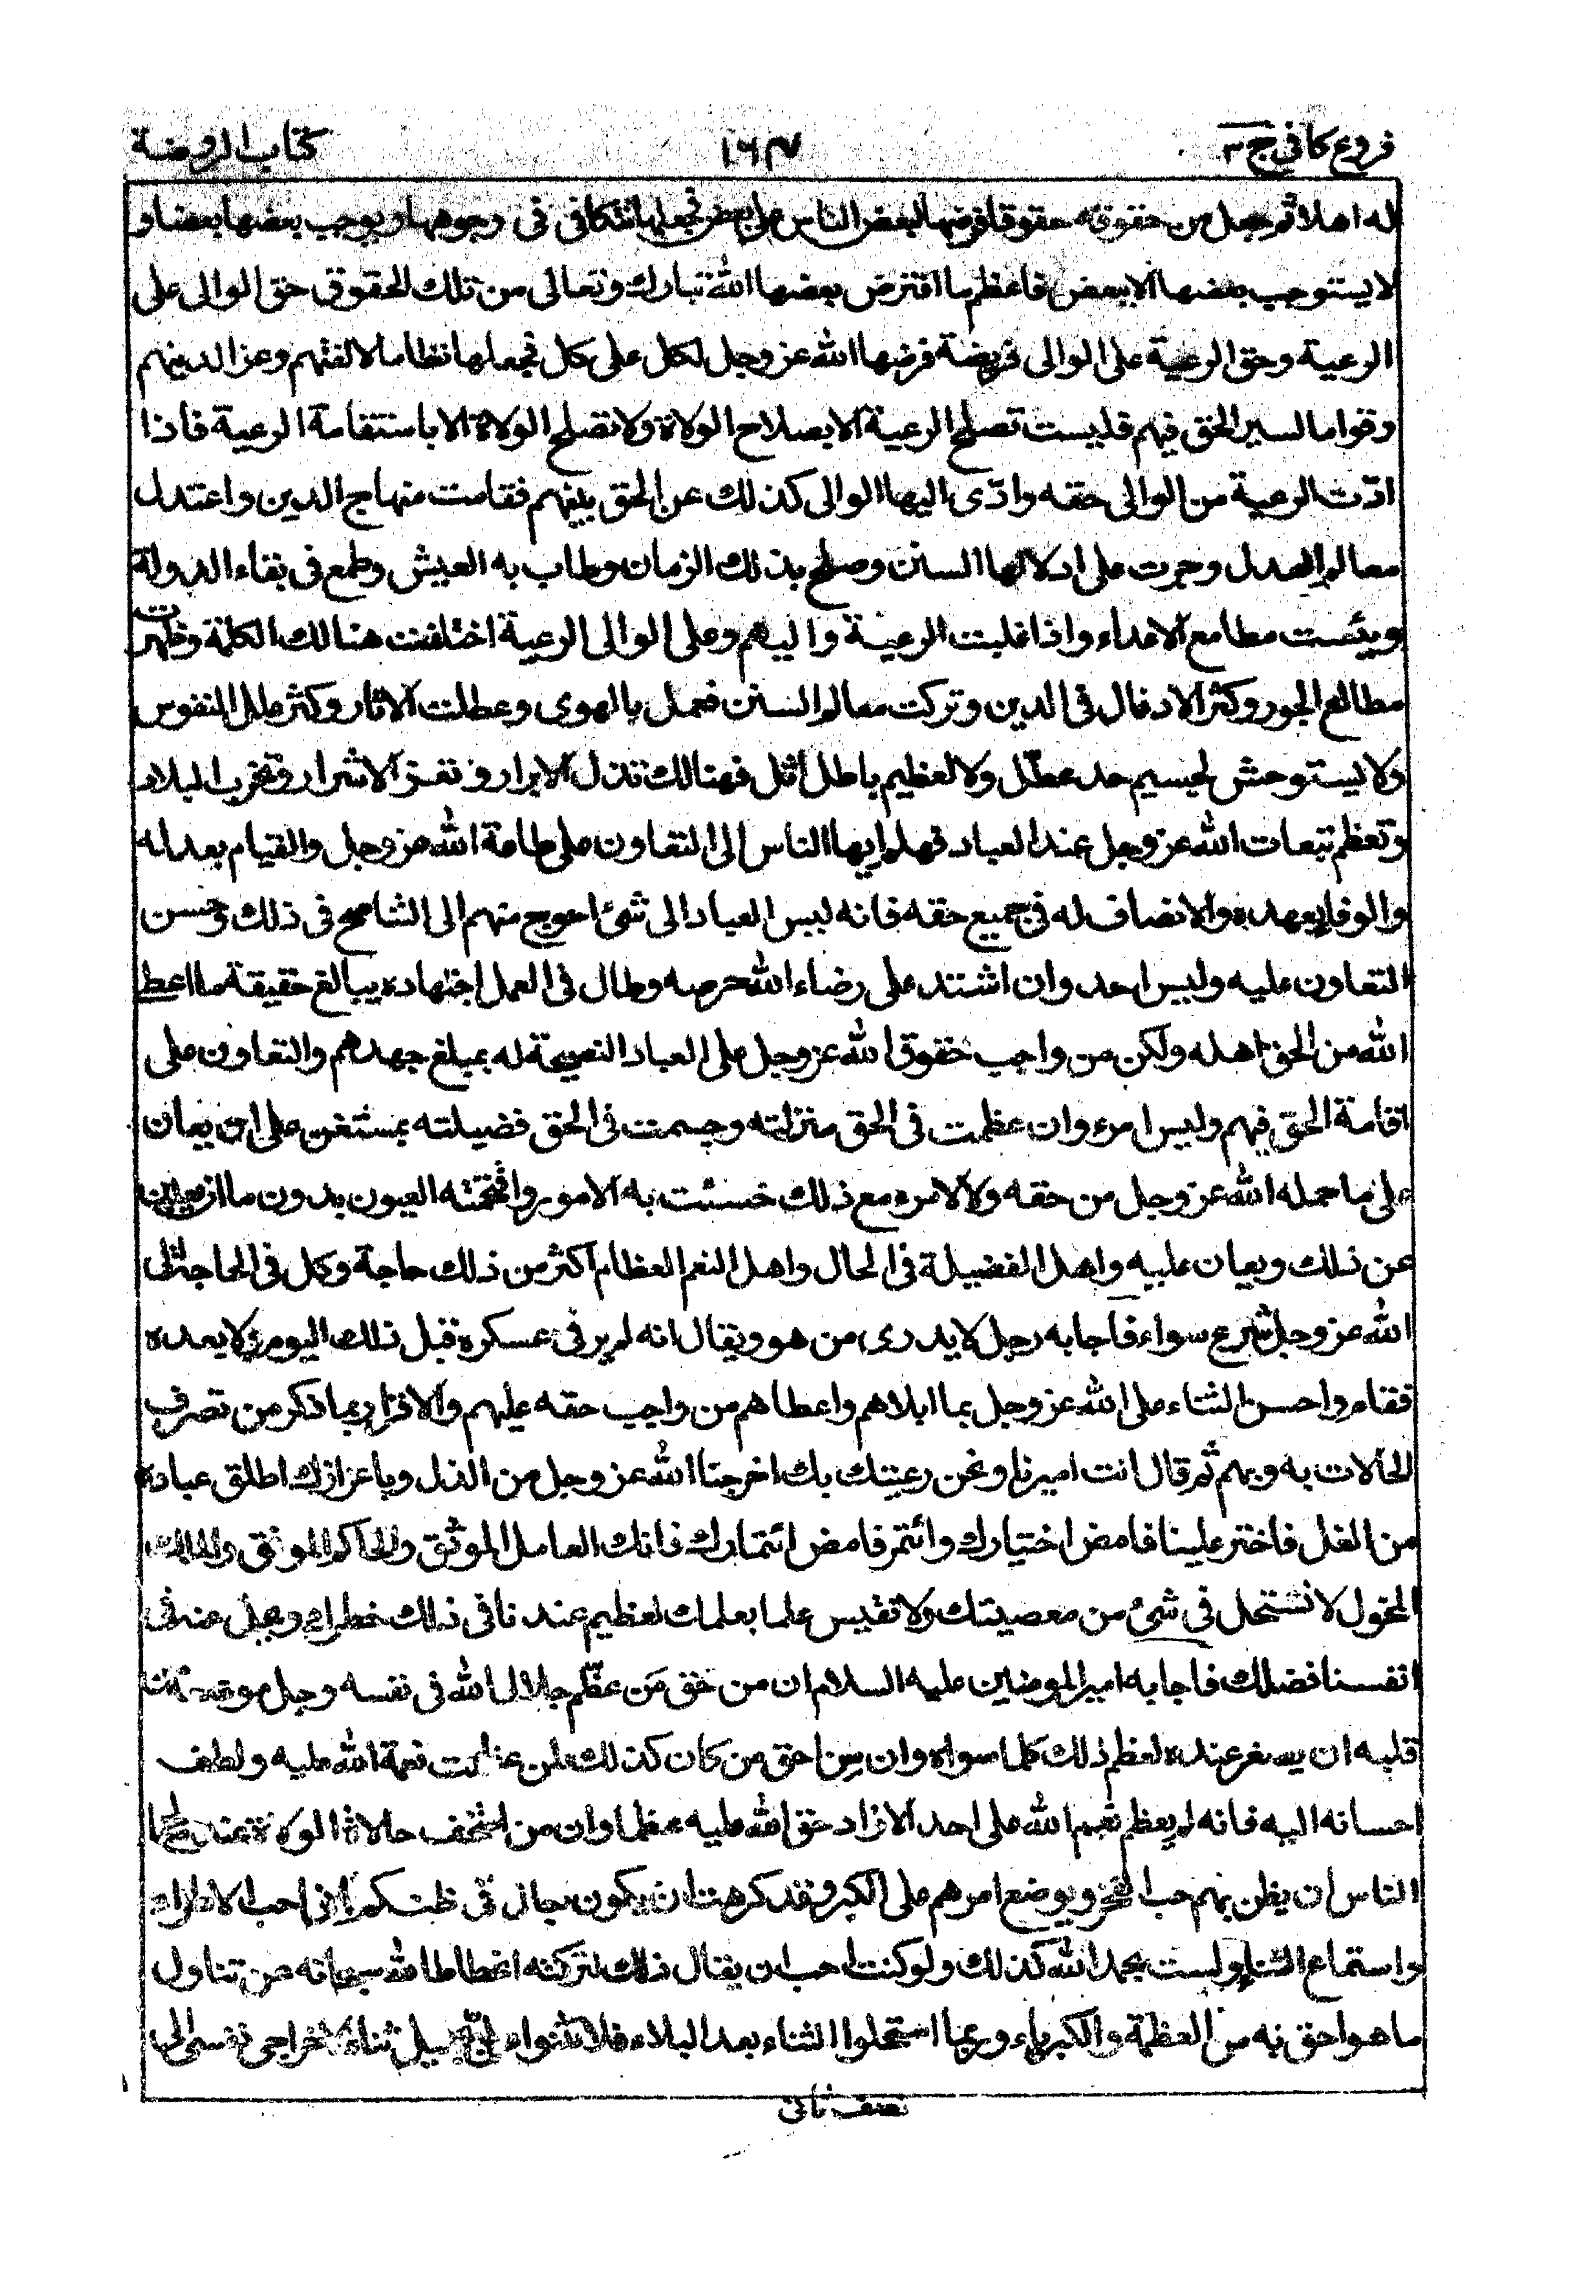 فروع كافي ج ٣
١٦٧
كتاب الروضة
له اهلا ثم جعل من حقوقه حقوقا فرضها لبعض الناس على بعض فجعلها تتكافى فى وجوهها ويوجب بعضها بعضا و
لا يستوجب بعضها الا ببعض فاعظم ما افترض بعضها الله تبارك وتعالى من تلك الحقوق حق الوالى على
الرعية وحق الرعية على الوالى فريضة فرضها الله عز وجل لكل على كل فجعلها نظاما لالفتهم وعز الدينهم
وقواما لسير الحق فيهم فليست تصلح الرعية الا بصلاح الولاة ولا تصلح الولاة الا باستقامة الرعية فاذا
ادّت الرعية من الوالى حقه وادّى اليها الوالى كذلك عز الحق بينهم فقامت منهاج الدين واعتدل
معالم العدل وجرت على ادلالها السنن وصلح بذلك الزمان وطاب به العيش وطمع فى بقاء الدولة
ويئست مطامع الاعداء واذا غلبت الرعية واليهم وعلى الوالى الرعية اختلفت هنالك الكلمة وظهرت
مطالع الجور وكثر الادغال فى الدين وتركت معالم السنن فعمل بالهوى وعطلت الاثار وكثر علل النفوس
ولا يستوحش لجسيم حد عطّل ولا لعظيم باطل اثّل فهنالك تذل الابرار و تعز الاشرار وتخرب البلاد
وتعظم تبعات الله عز وجل عند العباد فهلم ايها الناس الى التعاون على طاعة الله عز وجل والقيام بعدله
والوفاء بعهده والانصاف له فى جميع حقه فانه ليس العباد الى شئ احوج منهم الى التناصح فى ذلك وحسن
التعاون عليه وليس احد وان اشتد على رضاء الله حرصه وطال فى العمل اجتهاده ببالغ حقيقة ما اعطى
الله من الحق اهله ولكن من واجب حقوق الله عز وجل على العباد النصيحة له بمبلغ جهدهم والتعاون على
اقامة الحق فيهم وليس امرء وان عظمت فى الحق منزلته وجسمت فى الحق فضيلته بمستغن على ان يعان
على ما حمله الله عز وجل من حقه ولا لامرء مع ذلك خسئت به الامور واقتحمته العيون بدون ما ان يعين
عن ذلك ويعان عليه واهل الفضيلة فى الحال واهل النعم العظام اكثر من ذلك حاجة وكل فى الحاجة الى
الله عز وجل شرع سواء فاجابه رجل لا يدرى من هو ويقال انه لم ير فى عسكره قبل ذلك اليوم ولا بعده
فقام واحسن الثناء على الله عز وجل بما ابلاهم واعطاهم من واجب حقه عليهم والاقرار بما ذكر من تصرف
الحالات به وبهم ثم قال انت اميرنا ونحن رعيتك بك اخرجنا الله عز وجل من الذل وباعزازك اطلق عباده
من الغل فاختر علينا فامض اختيارك وائتمر فامض ائتمارك فانك العامل الموثق والحاكم الموثق والملك
المخول لا نستحل فى شئ من معصيتك ولا نقيس علما بعلمك لعظيم عندنا فى ذلك خطرك ويجل عنه فى
انفسنا فضلك فاجابه امير المومنين عليه السلام ان من حق من عظّم جلال الله فى نفسه وجل موضعه من
قلبه ان يصغر عنده لعظم ذلك كلما سواه وان من احق من كان كذلك لمن عظمت نعمة الله عليه ولطف
احسانه اليه فانه لم يعظم نعم الله على احد الا زاد حق الله عليه عظما وان من اسخف حالات الولاة عند صالح
الناس ان يظن بهم حب الفخر ويوضع امرهم على الكبر وقد كرهت ان يكون جال فى ظنكم انى احب الاطراء
واستماع الثناء ولست بحمد الله كذلك ولو كنت احب ان يقال ذلك لتركته انحطاطا لله سبحانه عن تناول
ما هو احق به من العظمة والكبرياء وربما استحلوا الثناء بعد البلاء فلا تثنوا على بجميل ثناء لاخراجى نفسى الى
نصف ثانى